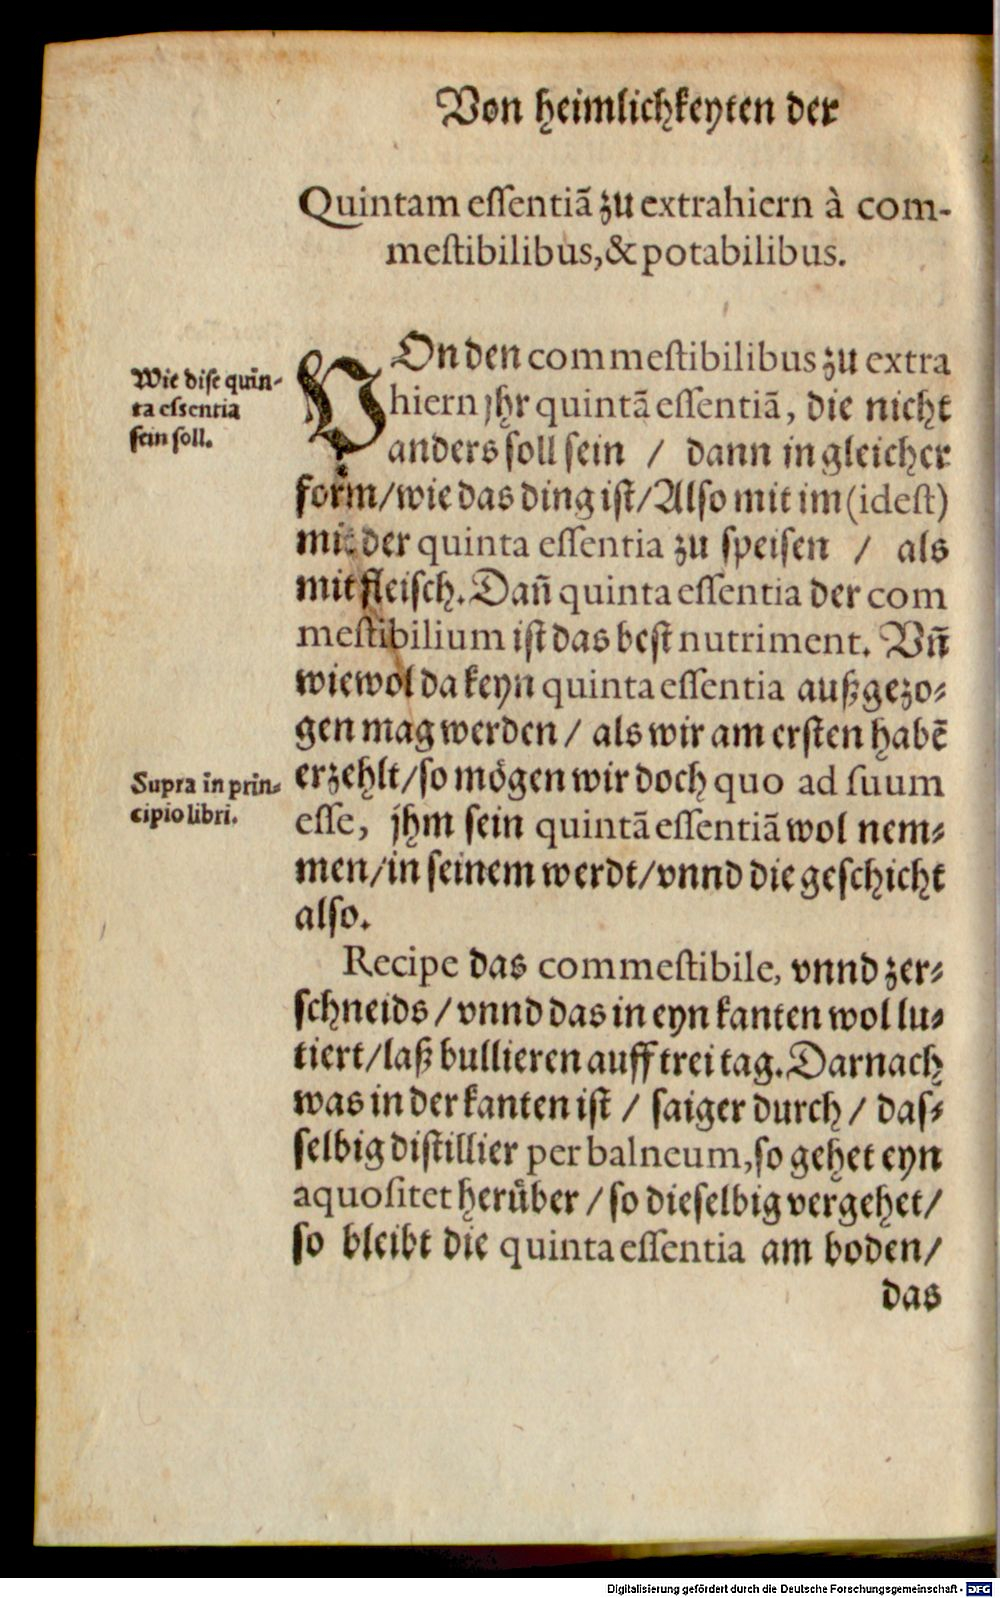 Von heimlichkeyten der
Quintam essentiã zu extrahiern à com-
mestibilibus, & potabilibus.
Wie dise quin-
ta essentia
sein soll.
VOn den commestibilibus zu extra
hiern jhr quintã essentiã, die nicht
anders soll sein / dann in gleicher
form/wie das ding ist/Also mit im (idest)
mit der quinta essentia zu speisen / als
mit fleisch. Dañ quinta essentia der com
mestibilium ist das best nutriment. Vñ
wiewol da keyn quinta essentia außgezo-
gen mag werden / als wir am ersten habẽ
Supra in prin-
cipio libri.
erzehlt/so mögen wir doch quo ad suum
esse, jhm sein quintã essentiã wol nem-
men/in seinem werdt/vnnd die geschicht
also.
Recipe das commestibile, vnnd zer-
schneids / vnnd das in eyn kanten wol lu-
tiert/laß bullieren auff trei tag. Darnach
was in der kanten ist / saiger durch / das-
selbig distillier per balneum, so gehet eyn
aquositet herüber / so dieselbig vergehet/
so bleibt die quinta essentia am boden/
das
Digitalisierung gefördert durch die Deutsche Forschungsgemeinschaft - DFG